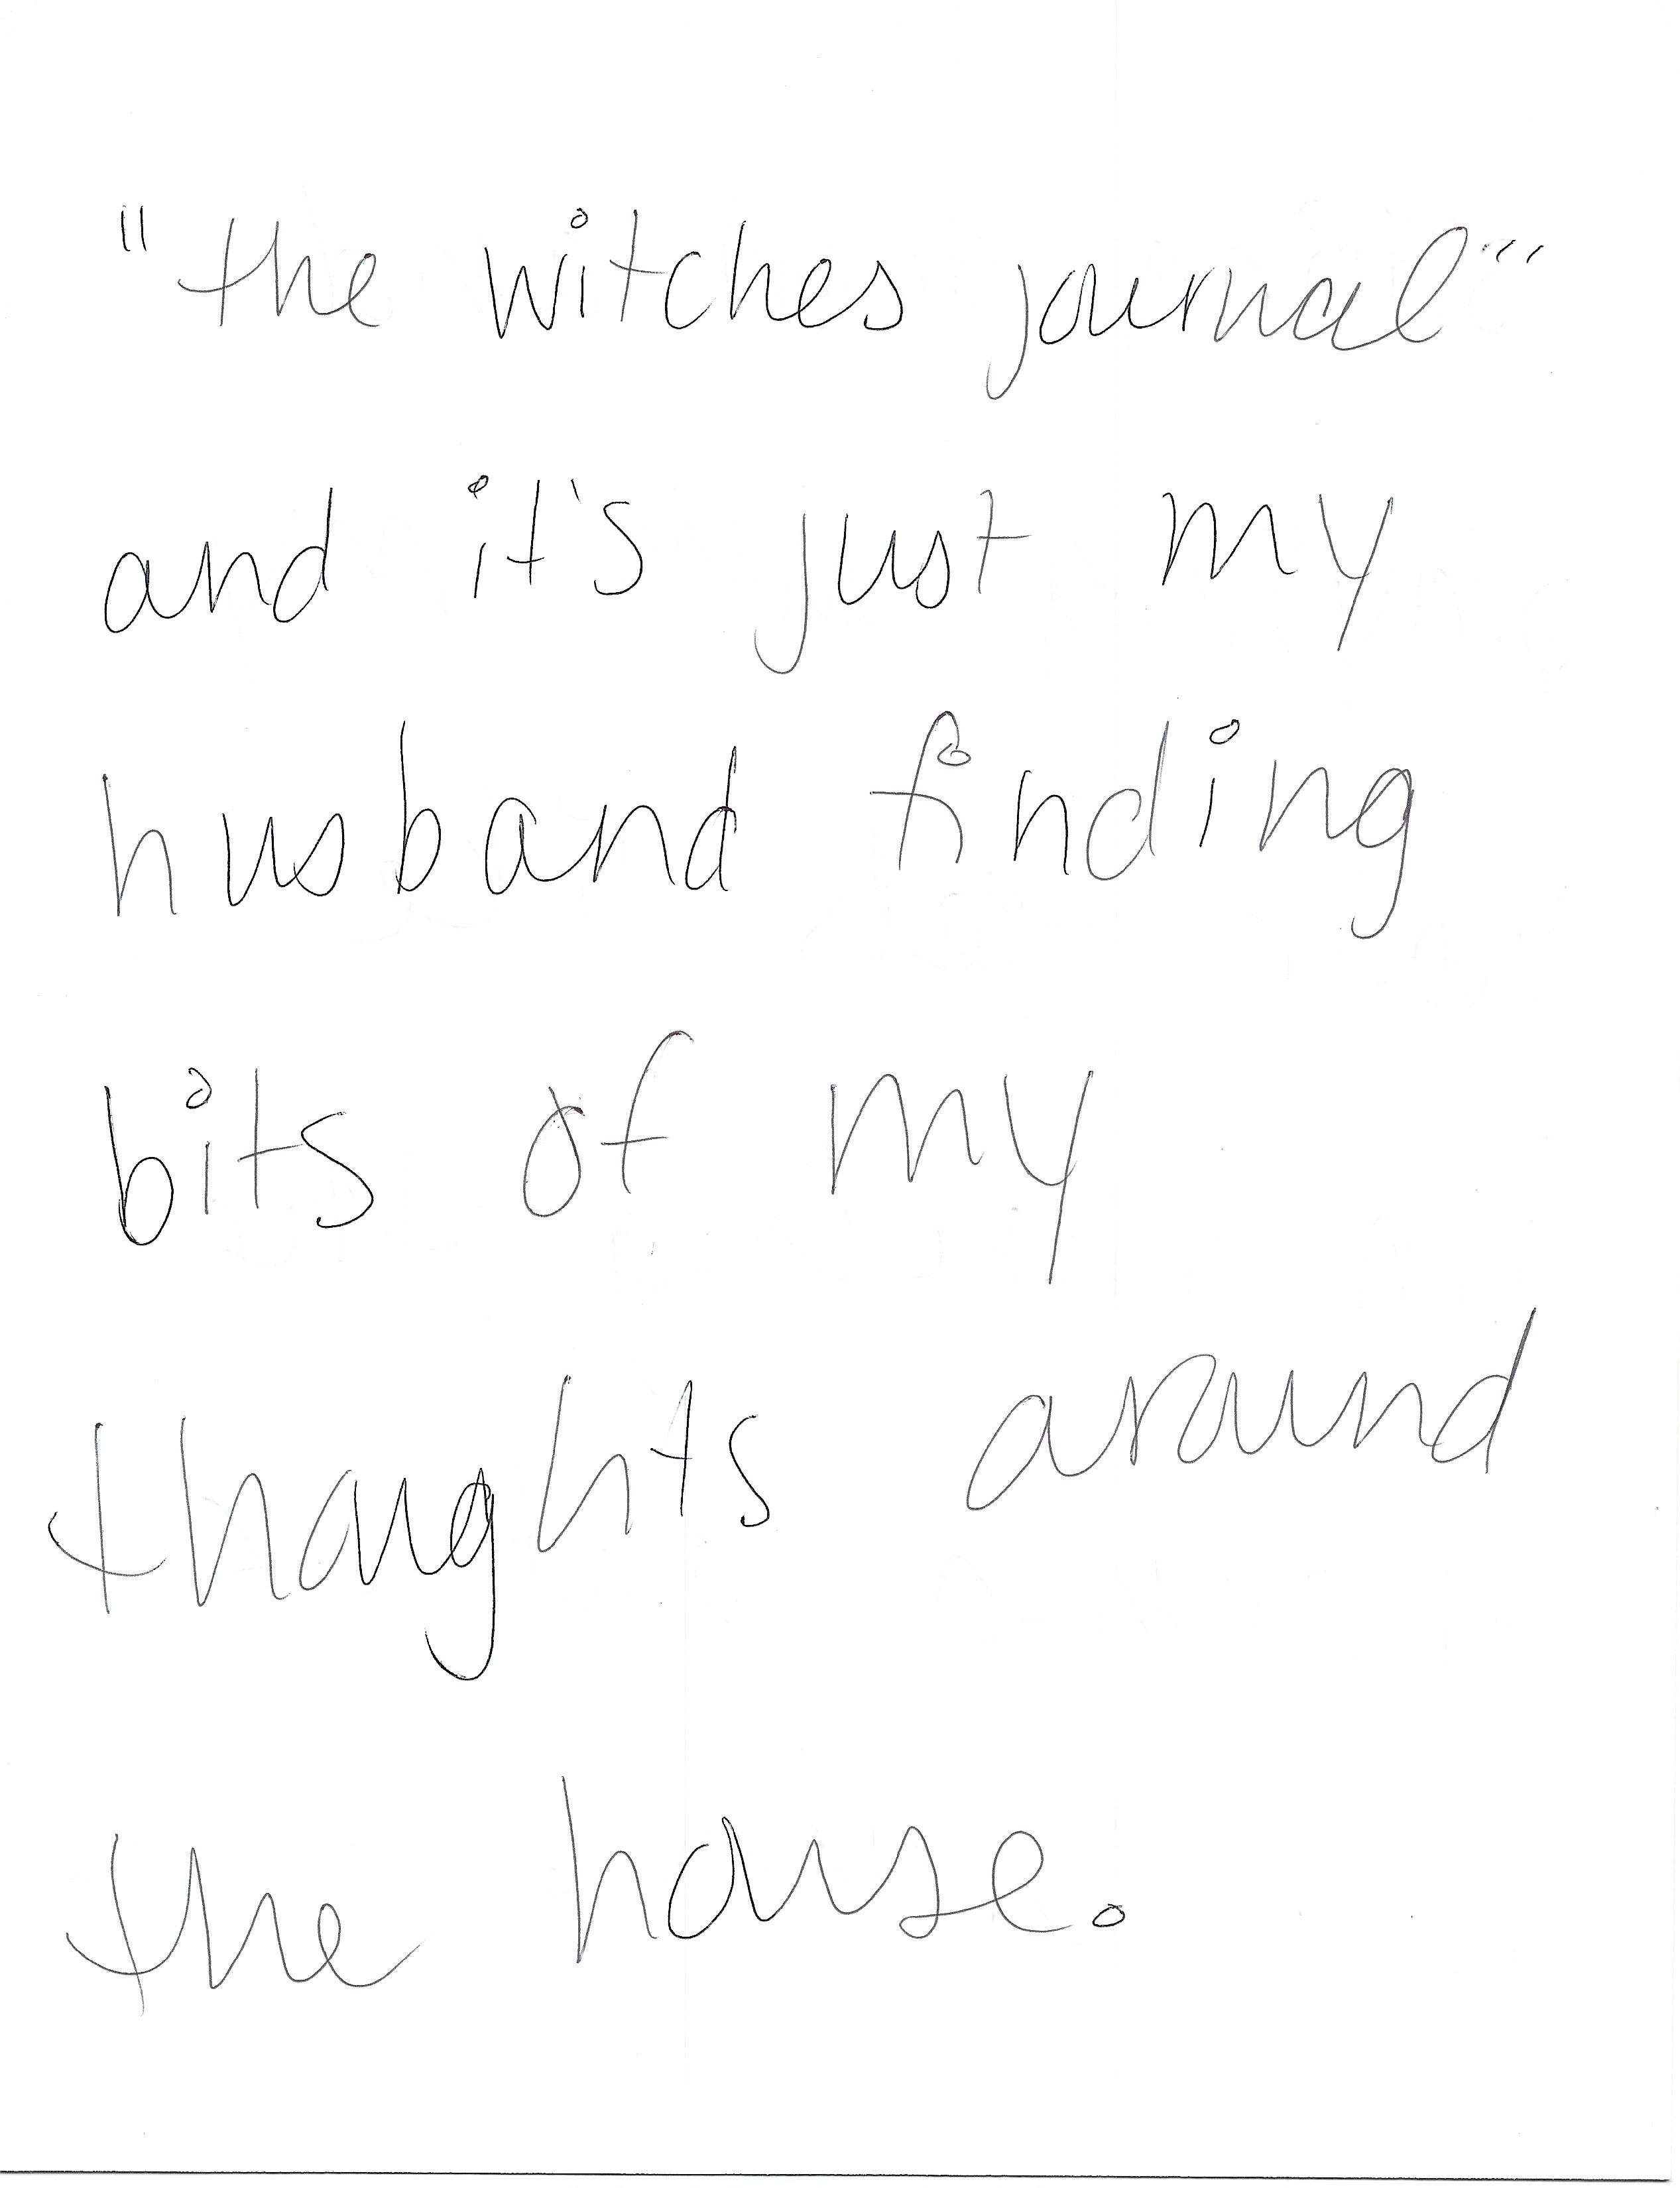 "the witches journal"
and it's just my
husband finding
bits of my
thoughts around
the house.